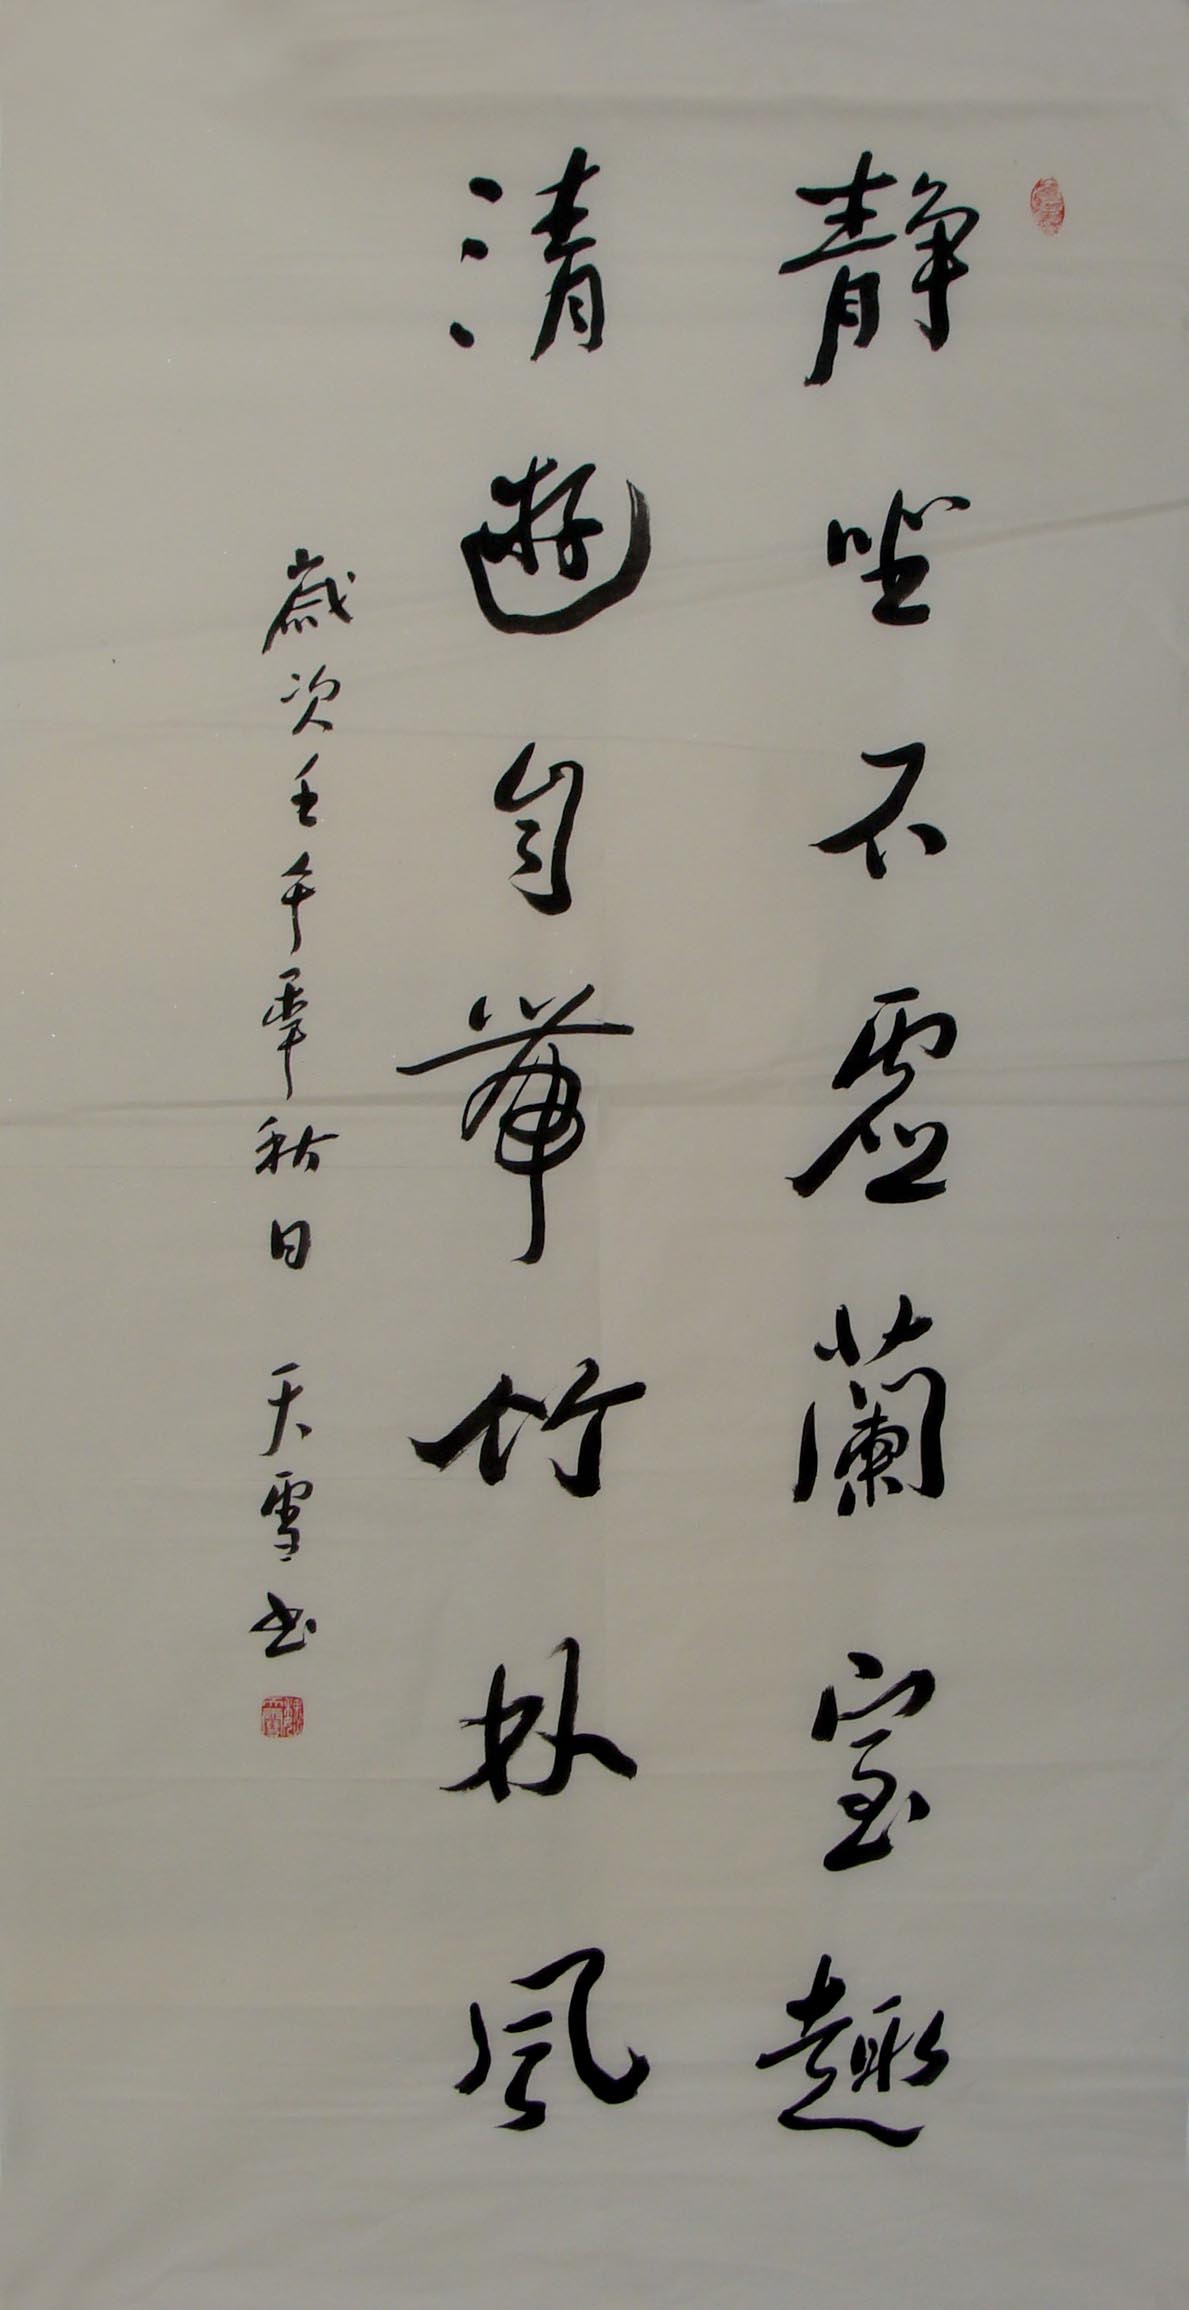 靜坐不虛蘭室趣
清遊自帶竹林風
歲次壬午年秋日 天雪书